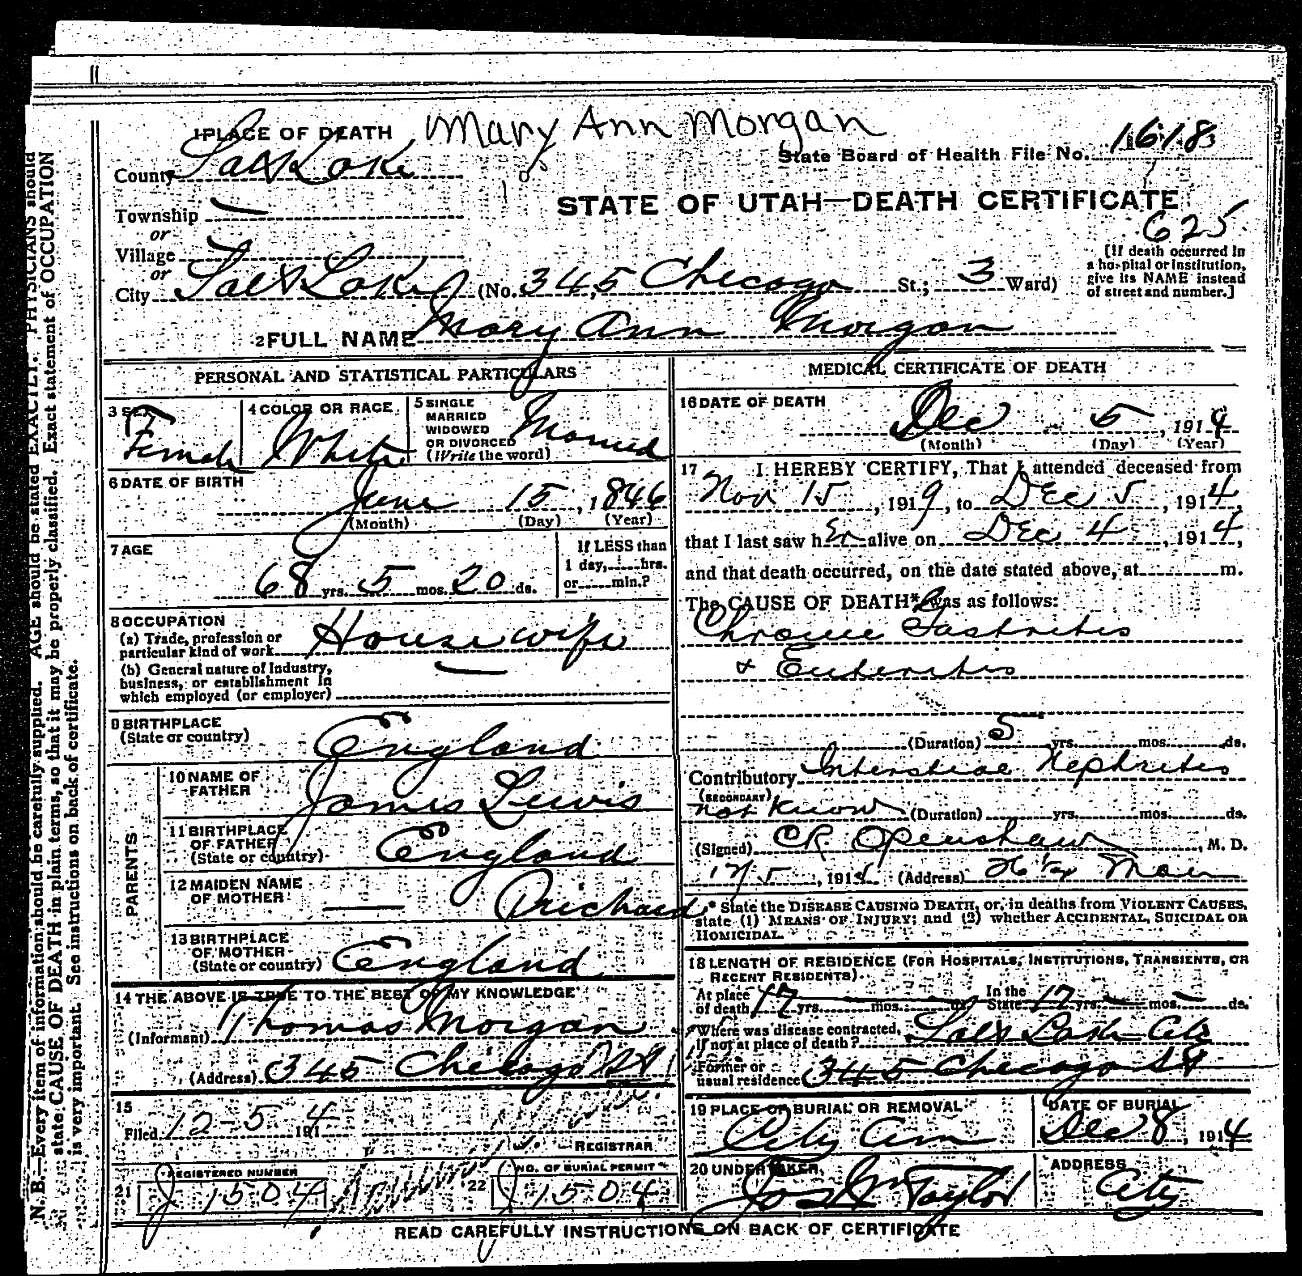 Mary Ann Morgan
1 PLACE OF DEATH
State Board of Health File No. 1618
County Salt Lake
STATE OF UTAH—DEATH CERTIFICATE
625
Township —
or
Village
or
City Salt Lake (No. 345 Chicago St.; 3 Ward)
[If death occurred in a hospital or institution, give its NAME instead of street and number.]
2 FULL NAME Mary Ann Morgan
PERSONAL AND STATISTICAL PARTICULARS
3 SEX Female
4 COLOR OR RACE White
5 SINGLE MARRIED WIDOWED OR DIVORCED (Write the word) Married
6 DATE OF BIRTH
June 15, 1846
(Month) (Day) (Year)
7 AGE
68 yrs. 5 mos. 20 ds.
If LESS than 1 day, hrs. or min.?
8 OCCUPATION
(a) Trade, profession or particular kind of work House wife
(b) General nature of Industry, business, or establishment in which employed (or employer) —
9 BIRTHPLACE
(State or country) England
PARENTS
10 NAME OF FATHER James Lewis
11 BIRTHPLACE OF FATHER (State or country) England
12 MAIDEN NAME OF MOTHER — Prichard
13 BIRTHPLACE OF MOTHER (State or country) England
14 THE ABOVE IS TRUE TO THE BEST OF MY KNOWLEDGE
(Informant) Thomas Morgan
(Address) 345 Chicago St
15
Filed 12-5 1914
REGISTRAR
21 REGISTERED NUMBER J 1504
22 NO. OF BURIAL PERMIT J 1504
MEDICAL CERTIFICATE OF DEATH
16 DATE OF DEATH
Dec 5, 1914
(Month) (Day) (Year)
17 I HEREBY CERTIFY, That I attended deceased from
Nov 15, 1919, to Dec 5, 1914,
that I last saw her alive on Dec 4, 1914,
and that death occurred, on the date stated above, at m.
The CAUSE OF DEATH* was as follows:
Chronic Gastritis
& Enteritis
(Duration) 5 yrs. mos. ds.
Contributory Interstitial Nephritis
(SECONDARY)
not know (Duration) yrs. mos. ds.
(Signed) CR Openshaw, M. D.
12/5, 1914 (Address) Main
* State the DISEASE CAUSING DEATH, or, in deaths from VIOLENT CAUSES, state (1) MEANS OF INJURY; and (2) whether ACCIDENTAL, SUICIDAL OR HOMICIDAL.
18 LENGTH OF RESIDENCE (FOR HOSPITALS, INSTITUTIONS, TRANSIENTS, OR RECENT RESIDENTS)
At place of death 17 yrs. mos. ds. In the State 17 yrs. — mos. — ds.
Where was disease contracted, if not at place of death? Salt Lake City
Former or usual residence 345 Chicago St
19 PLACE OF BURIAL OR REMOVAL City Cem
DATE OF BURIAL Dec 8, 1914
20 UNDERTAKER Jos Wm Taylor
ADDRESS City
READ CAREFULLY INSTRUCTIONS ON BACK OF CERTIFICATE
N. B.—Every item of information should be carefully supplied. AGE should be stated EXACTLY. PHYSICIANS should
state CAUSE OF DEATH in plain terms, so that it may be properly classified. Exact statement of OCCUPATION
is very important. See instructions on back of certificate.